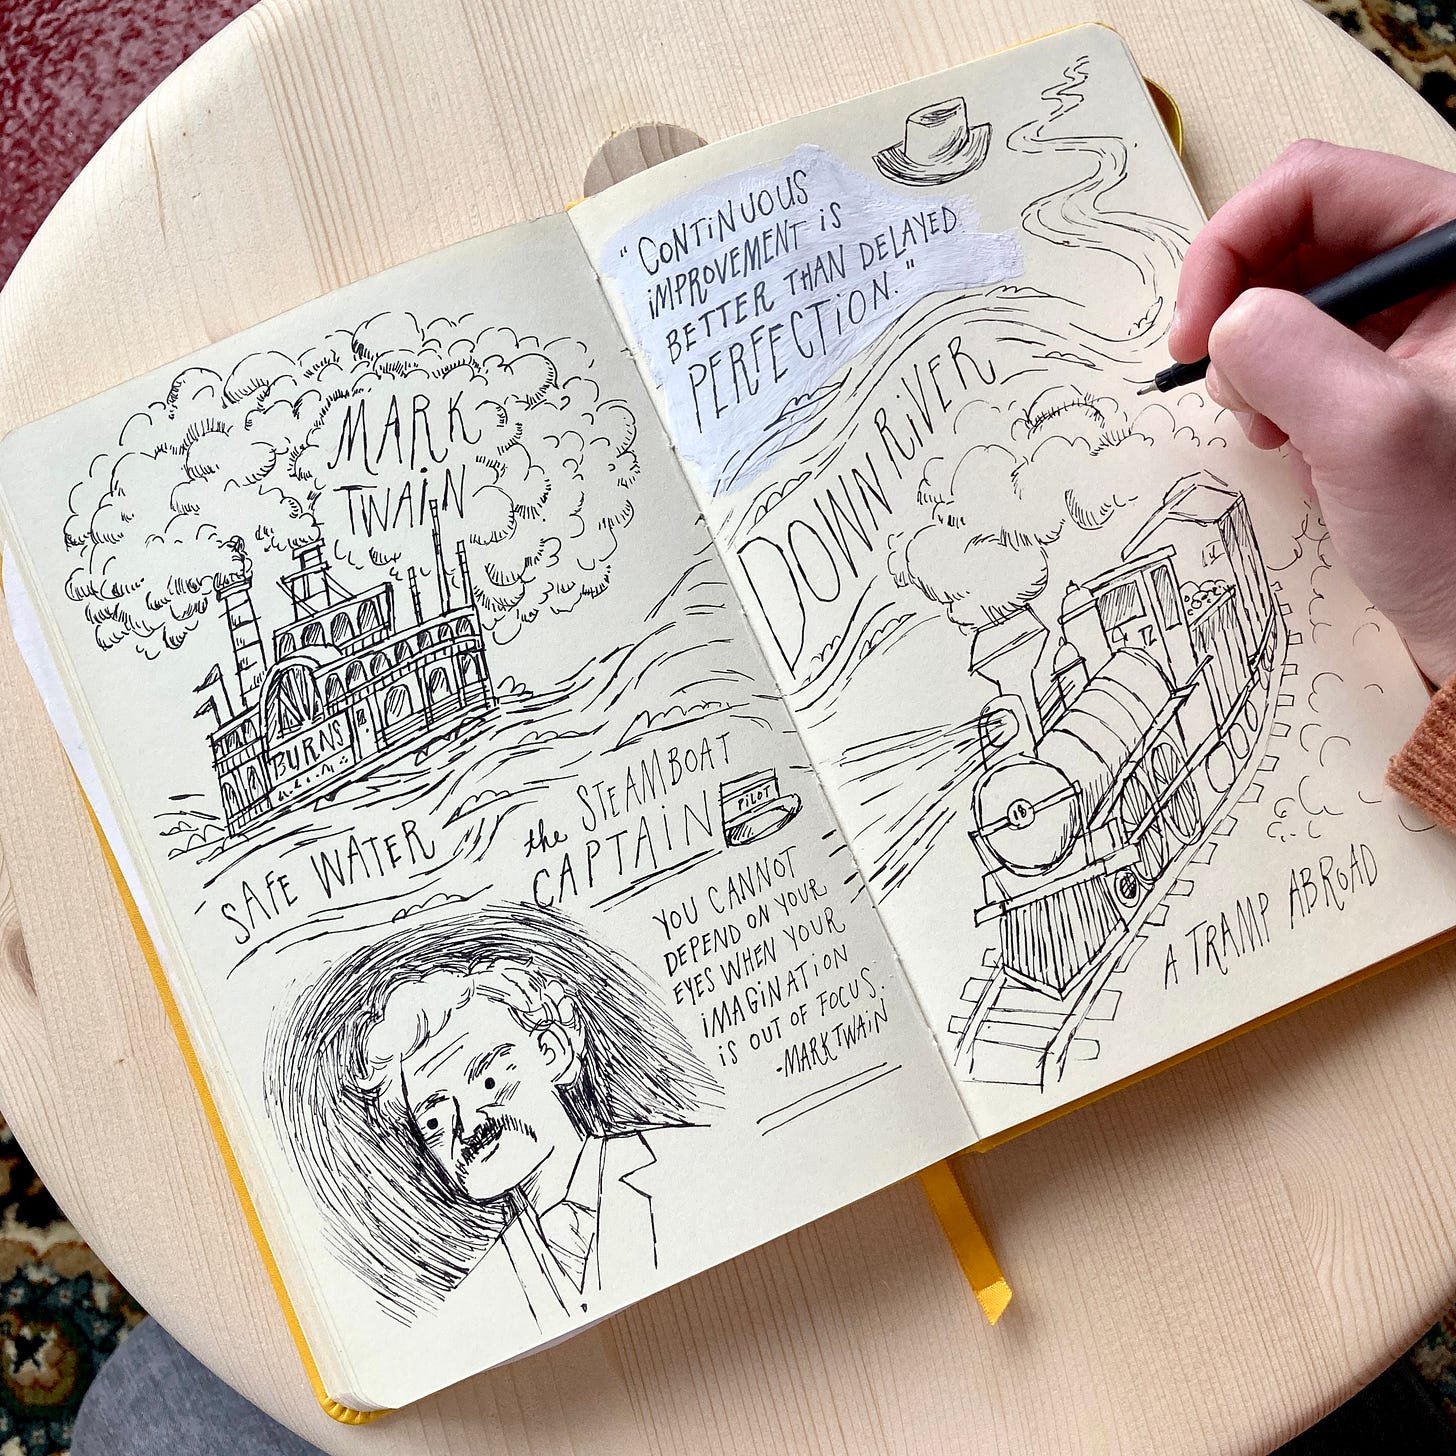 MARK
TWAIN
BURNS
SAFE WATER
the STEAMBOAT
CAPTAIN
PILOT
YOU CANNOT
DEPEND ON YOUR
EYES WHEN YOUR
IMAGINATION
IS OUT OF FOCUS.
-MARK TWAIN
"CONTINUOUS
IMPROVEMENT IS
BETTER THAN DELAYED
PERFECTION."
DOWN RIVER
18
A TRAMP ABROAD